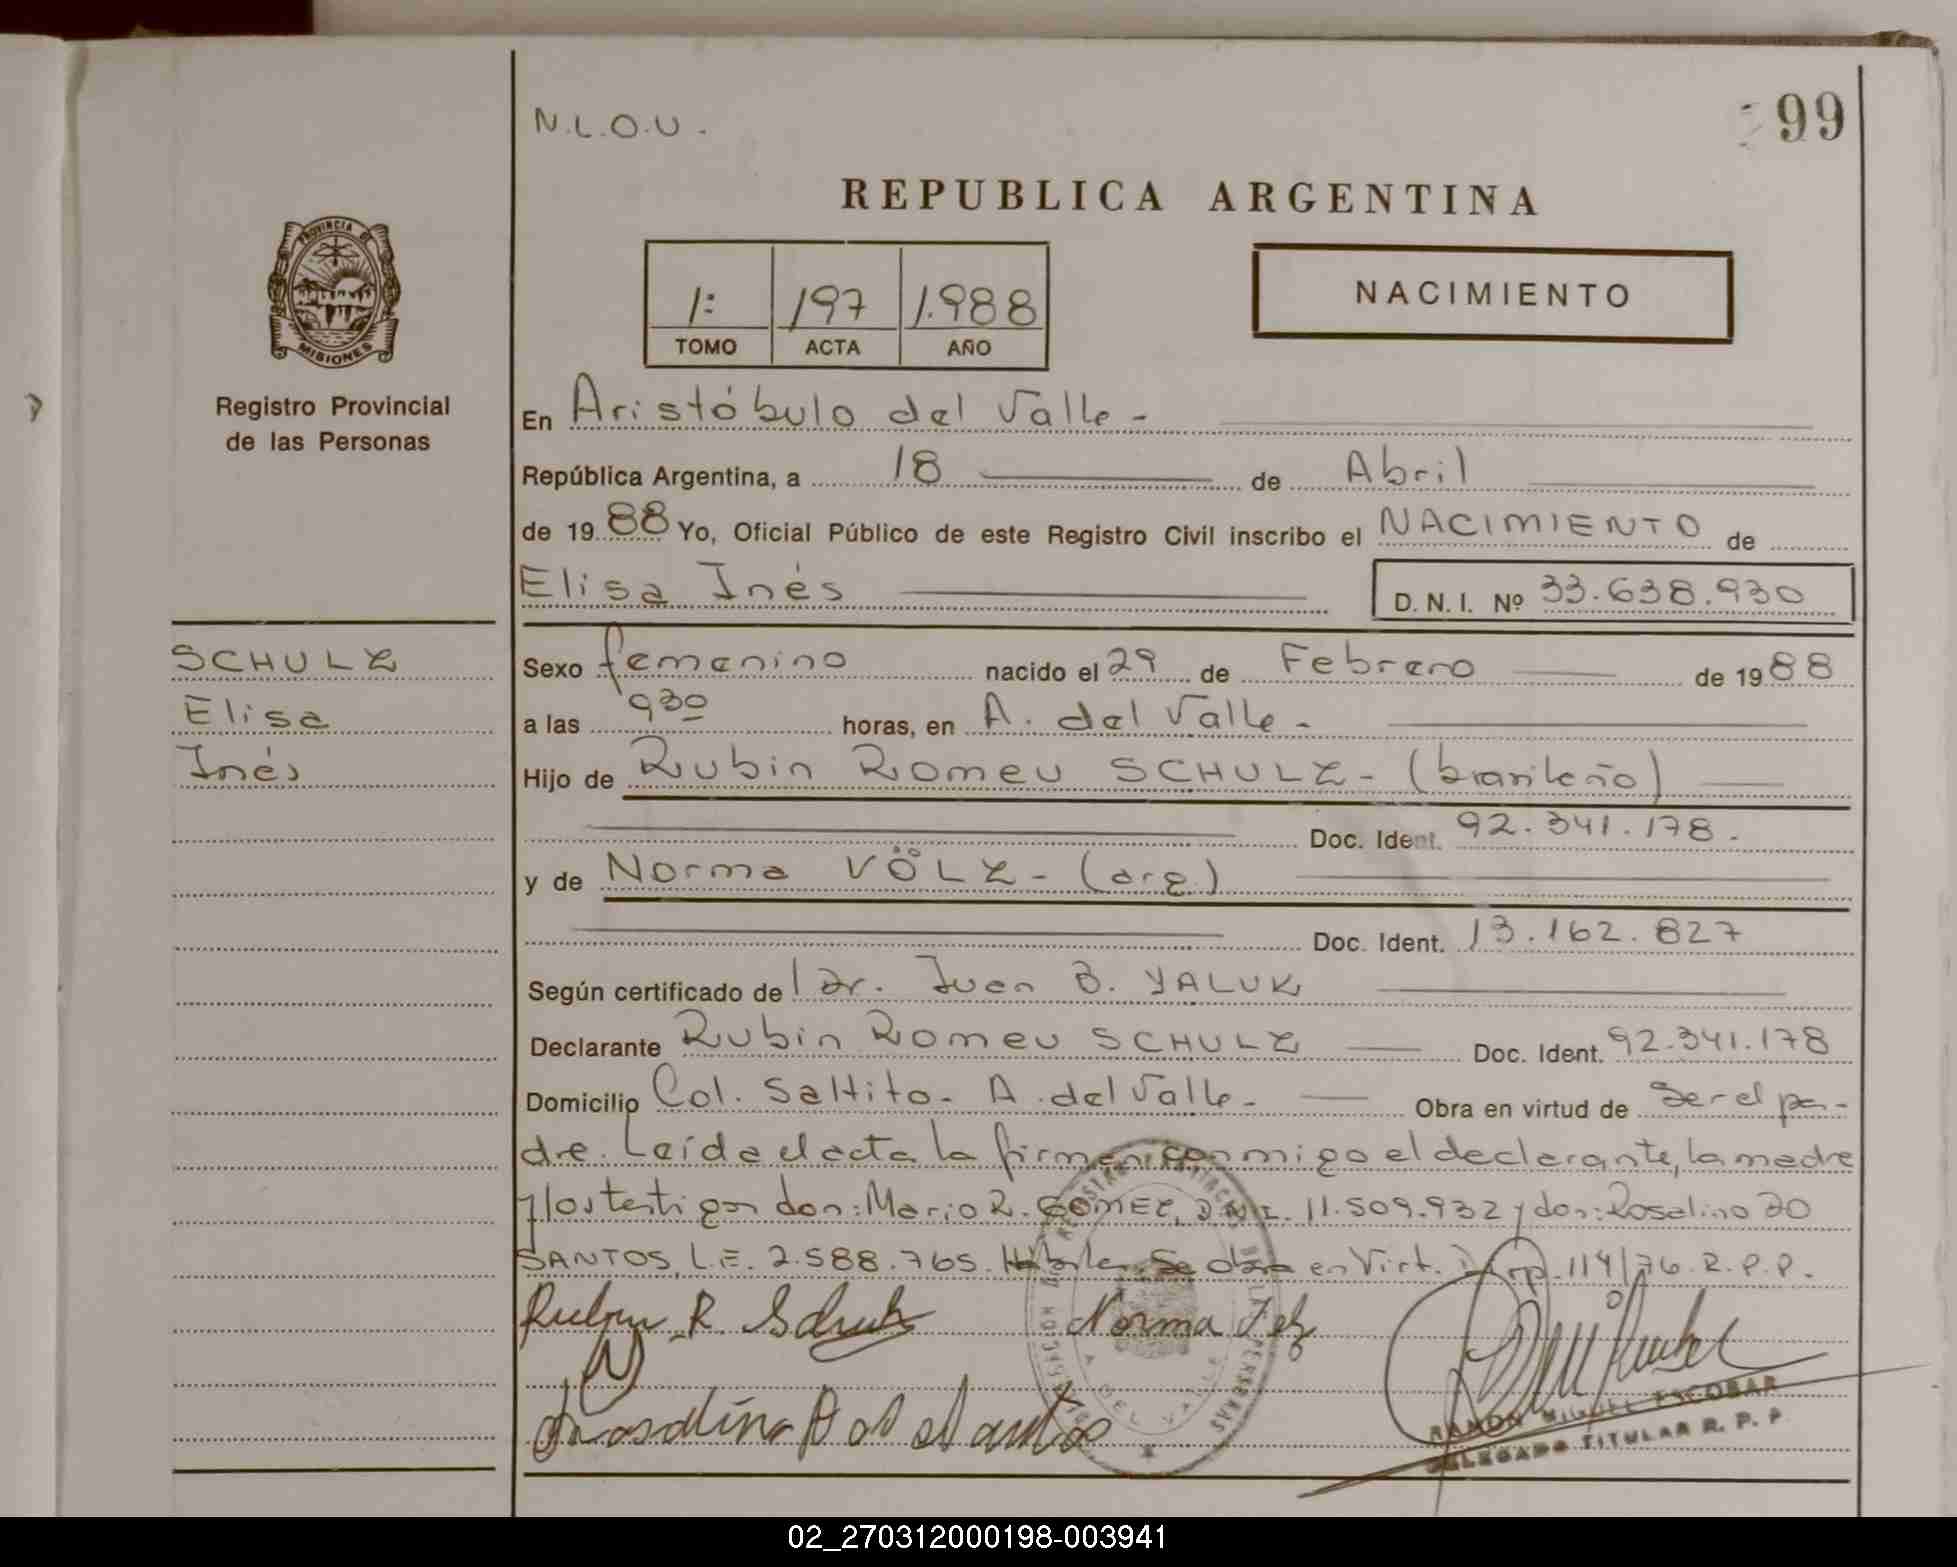 N.L.O.U.
99
REPUBLICA ARGENTINA
PROVINCIA DE
MISIONES
Registro Provincial
de las Personas
1: 197 1.988
TOMO ACTA AÑO
NACIMIENTO
En Aristóbulo del Valle-
República Argentina, a 18 de Abril
de 1988 Yo, Oficial Público de este Registro Civil inscribo el NACIMIENTO de
Elisa Inés D.N.I. Nº 33.638.930
SCHULZ
Elisa
Inés
Sexo femenino nacido el 29 de Febrero de 1988
a las 930 horas, en A. del Valle-
Hijo de Rubin Romeu SCHULZ- (brasileño)
Doc. Ident. 92.341.178.
y de Norma VÖLZ- (arg.)
Doc. Ident. 13.162.827
Según certificado del Dr. Juan B. YALUK
Declarante Rubin Romeu SCHULZ Doc. Ident. 92.341.178
Domicilio Col. Saltito- A. del Valle- Obra en virtud de Ser el pa-
dre. Leída el acta la firman conmigo el declarante, la madre
y los testigos don: Mario R. GOMEZ, D.N.I. 11.509.932 y don: Rosalino DO
SANTOS, L.E. 2.588.765. Hábiles. Se obra en Virt. Disp. 114/76. R.P.P.
Rubin R. Schulz Norma Felz
A. DEL VALLE
RAMON MIGUEL ESCOBAR
DELEGADO TITULAR R. P. P.
02_270312000198-003941